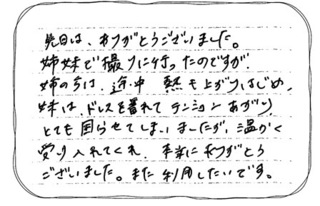 先日は、ありがとうございました。
姉妹で撮りに行ったのですが
姉の方は、途中 熱も上がりはじめ、
妹は、ドレスを着れてテンションあがり、
とても困らせてしまいましたが、温かく
受け入れてくれ、本当にありがとう
ございました。また利用したいです。